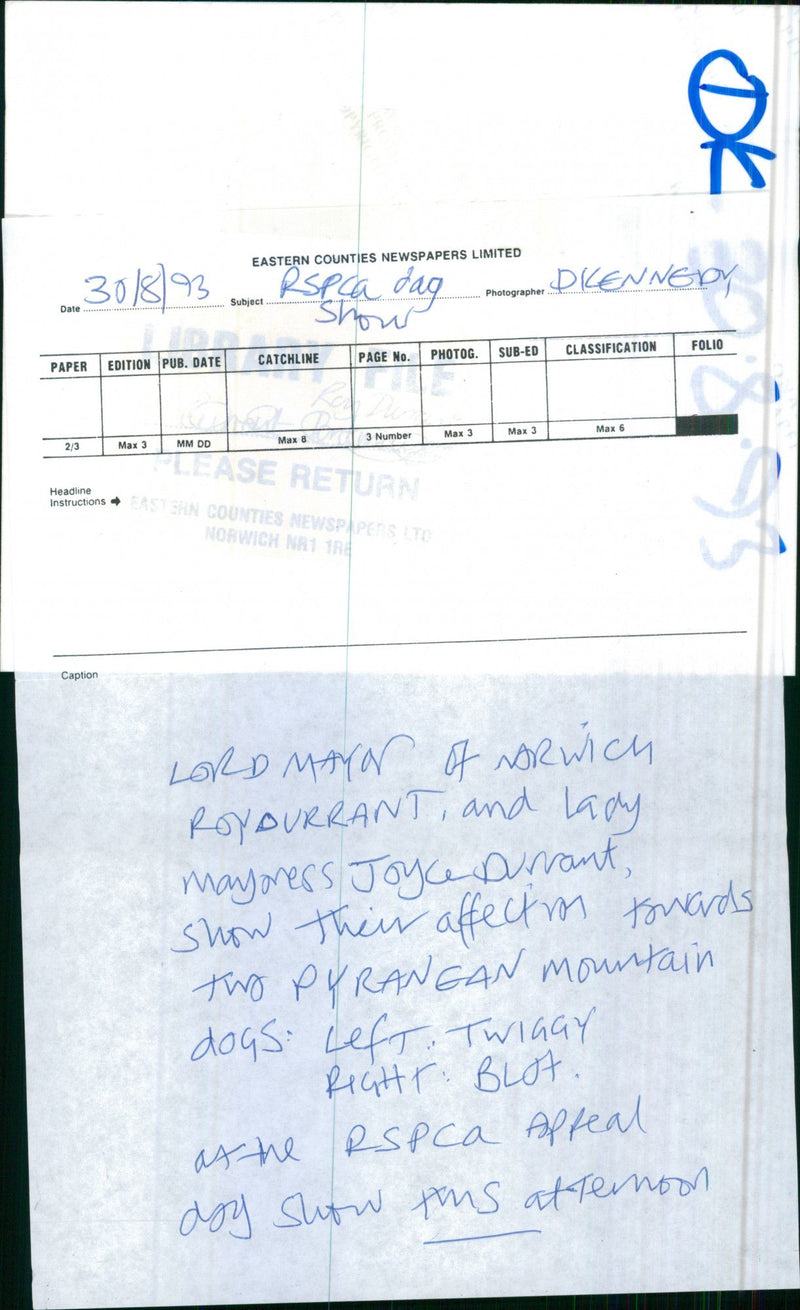 OK
EASTERN COUNTIES NEWSPAPERS LIMITED
Date 30/8/93 Subject RSPCA dog Show Photographer D KENNEDY
PAPER EDITION PUB. DATE CATCHLINE PAGE No. PHOTOG. SUB-ED CLASSIFICATION FOLIO
2/3 Max 3 MM DD Max 8 3 Number Max 3 Max 3 Max 6
LIBRARY FILE
PLEASE RETURN
EASTERN COUNTIES NEWSPAPERS LTD
NORWICH NR1 1RE
Headline
Instructions
Caption
LORD MAYOR OF NORWICH
ROY DURRANT, and Lady
mayoress Joyce Durrant,
show their affection towards
two PYRANEAN mountain
dogs: Left: TWIGGY
RIGHT: BLOT.
at the RSPCA Appeal
dog show this afternoon